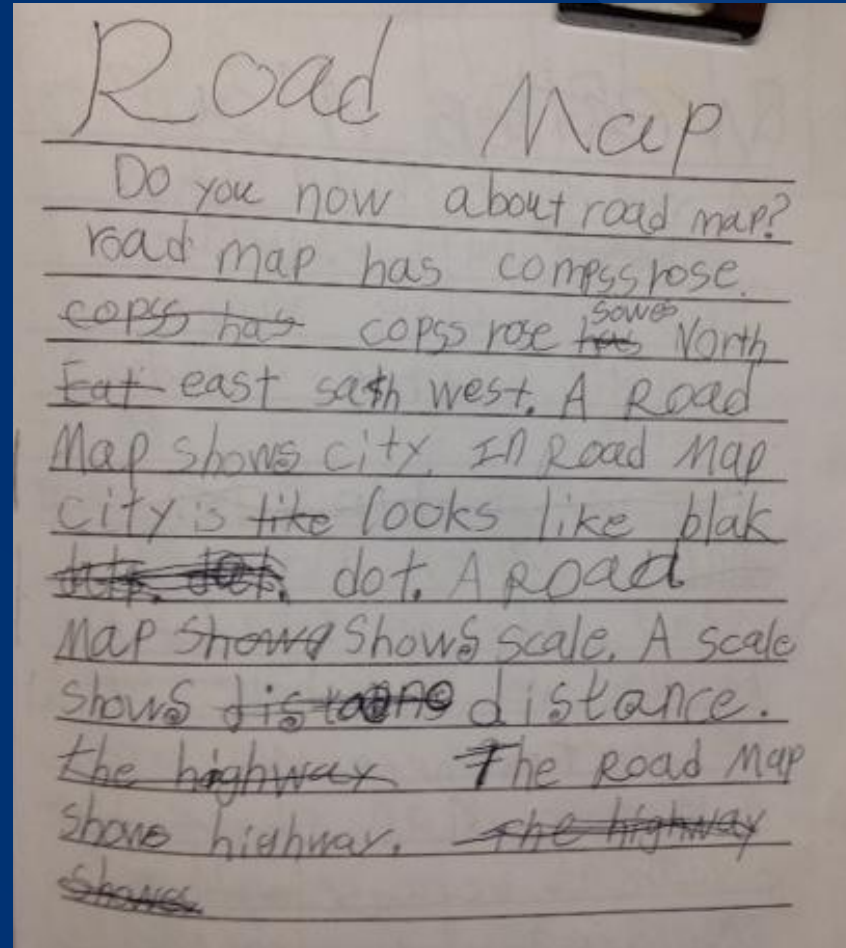 Road Map
Do you now about road map?
road map has compss rose.
copss has copss rose has sowes North
Eat east sath west. A Road
Map shows city. In Road Map
city is like looks like blak
dot. A Road
Map shows shows scale. A scale
shows distance.
the highway The Road Map
shows highway. The highway
showes